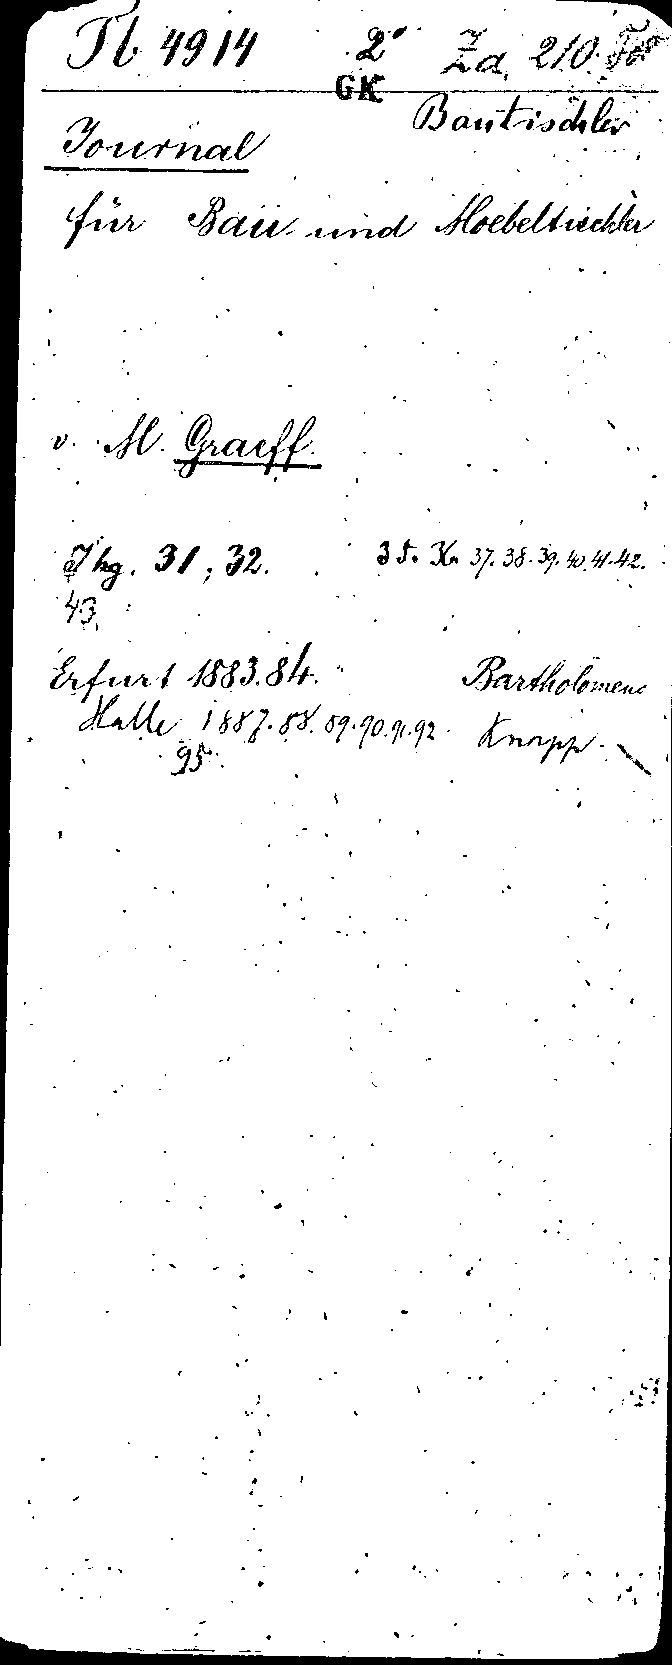 Tb 4914 2° Za 210 Fol
GK
Bautischler
Journal
für Bau- und Moebeltischler
v. M. Graeff.
Jhg. 31, 32. 35. 36. 37. 38. 39. 40. 41. 42.
43.
Erfurt 1883.84. Bartholomeus
Halle 1887.88.89.90.91.92 Knapp.
95.